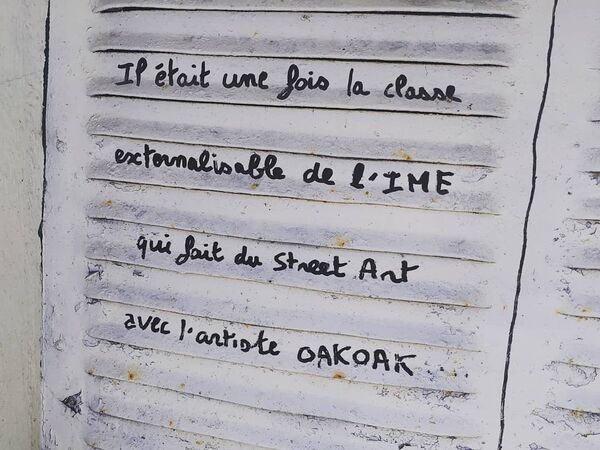 Il était une fois la classe
externalisable de l'IME
qui fait du Street Art
avec l'artiste OAKOAK ....